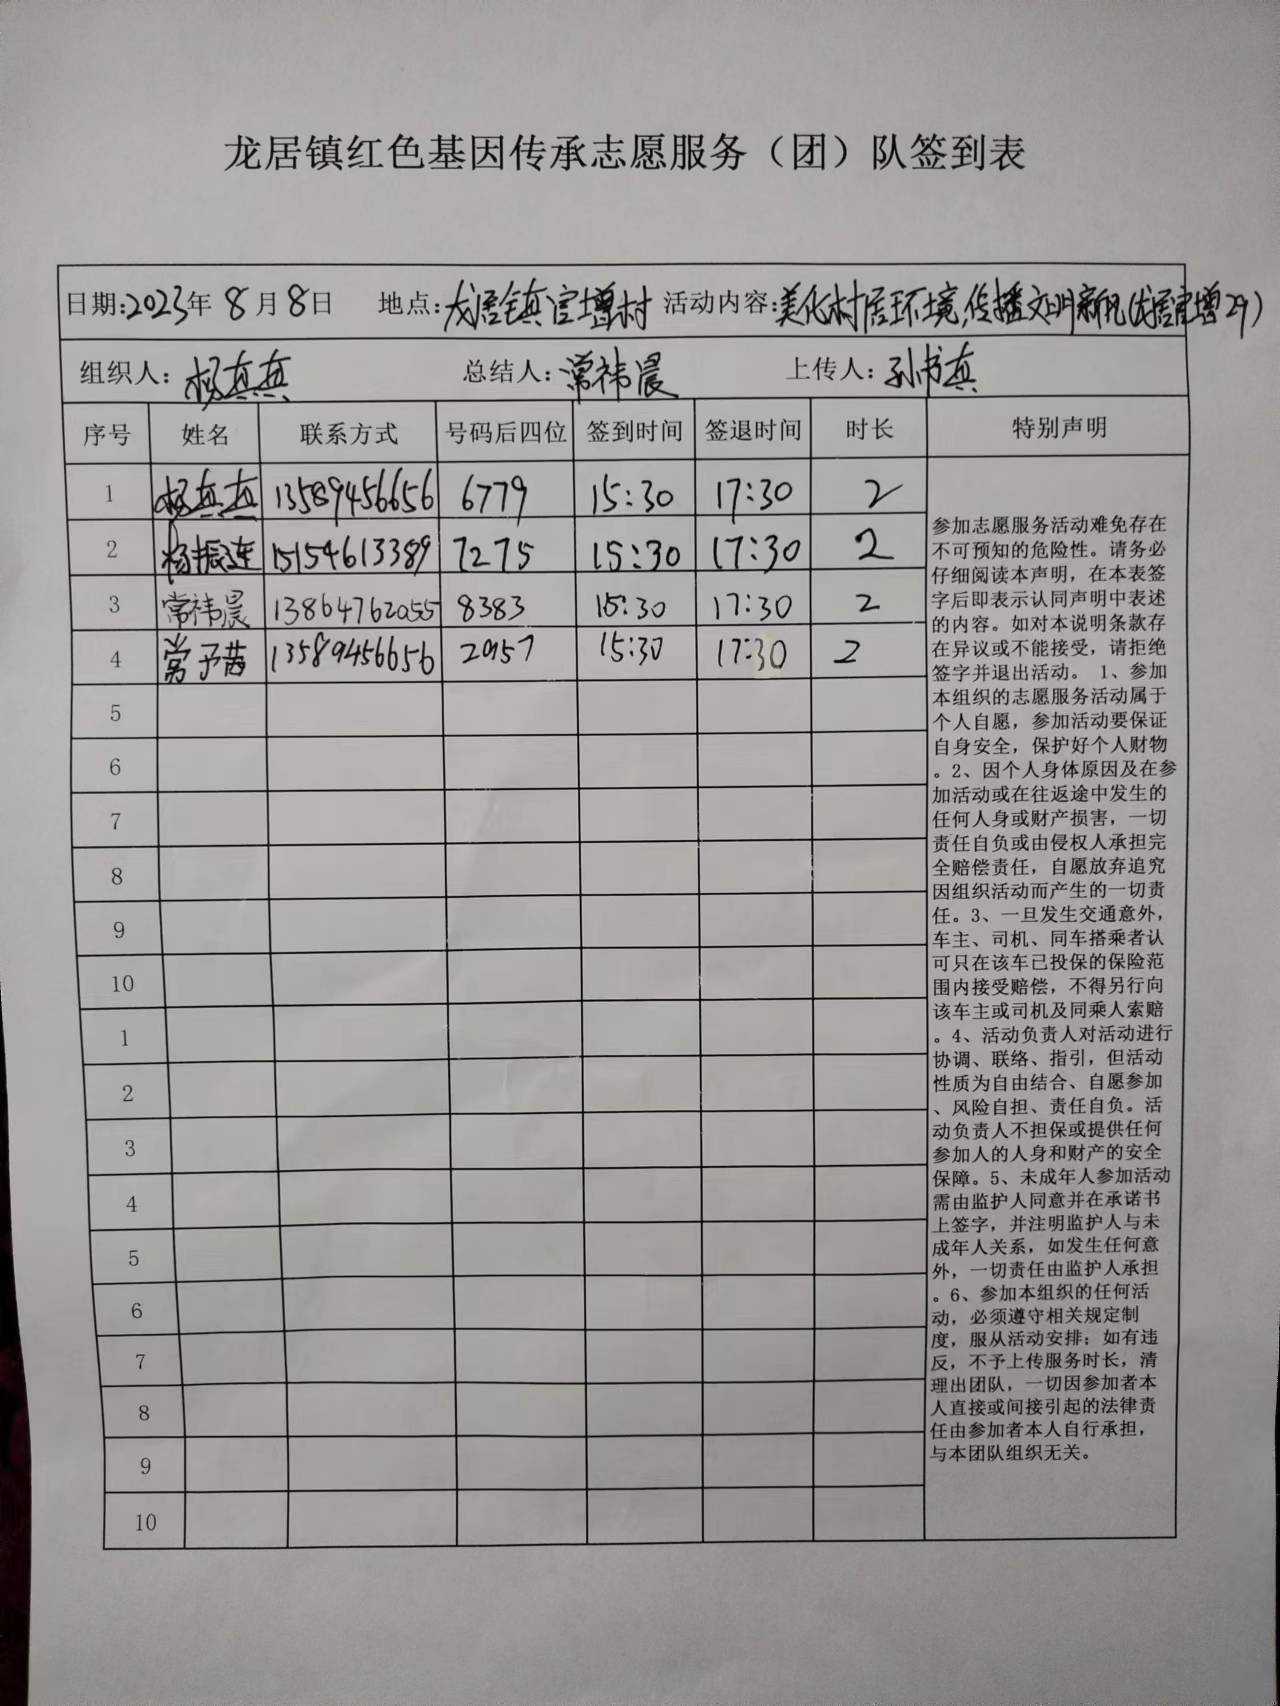 龙居镇红色基因传承志愿服务（团）队签到表
日期:2023年 8月8日 地点:龙居镇官增村 活动内容:美化村居环境,传播文明新风(龙居官增29)
组织人: 杨真真 总结人:常祎晨 上传人:孙书真
序号 姓名 联系方式 号码后四位 签到时间 签退时间 时长 特别声明
1 杨真真 13589456656 6779 15:30 17:30 2
2 杨振连 15154613389 7275 15:30 17:30 2
3 常祎晨 13864762055 8383 15:30 17:30 2
4 常予茜 13589456656 2957 15:30 17:30 2
5
6
7
8
9
10
1
2
3
4
5
6
7
8
9
10
参加志愿服务活动难免存在
不可预知的危险性。请务必
仔细阅读本声明，在本表签
字后即表示认同声明中表述
的内容。如对本说明条款存
在异议或不能接受，请拒绝
签字并退出活动。 1、参加
本组织的志愿服务活动属于
个人自愿，参加活动要保证
自身安全，保护好个人财物
。2、因个人身体原因及在参
加活动或在往返途中发生的
任何人身或财产损害，一切
责任自负或由侵权人承担完
全赔偿责任，自愿放弃追究
因组织活动而产生的一切责
任。3、一旦发生交通意外，
车主、司机、同车搭乘者认
可只在该车已投保的保险范
围内接受赔偿，不得另行向
该车主或司机及同乘人索赔
。4、活动负责人对活动进行
协调、联络、指引，但活动
性质为自由结合、自愿参加
、风险自担、责任自负。活
动负责人不担保或提供任何
参加人的人身和财产的安全
保障。5、未成年人参加活动
需由监护人同意并在承诺书
上签字，并注明监护人与未
成年人关系，如发生任何意
外，一切责任由监护人承担
。6、参加本组织的任何活
动，必须遵守相关规定制
度，服从活动安排；如有违
反，不予上传服务时长，清
理出团队，一切因参加者本
人直接或间接引起的法律责
任由参加者本人自行承担，
与本团队组织无关。